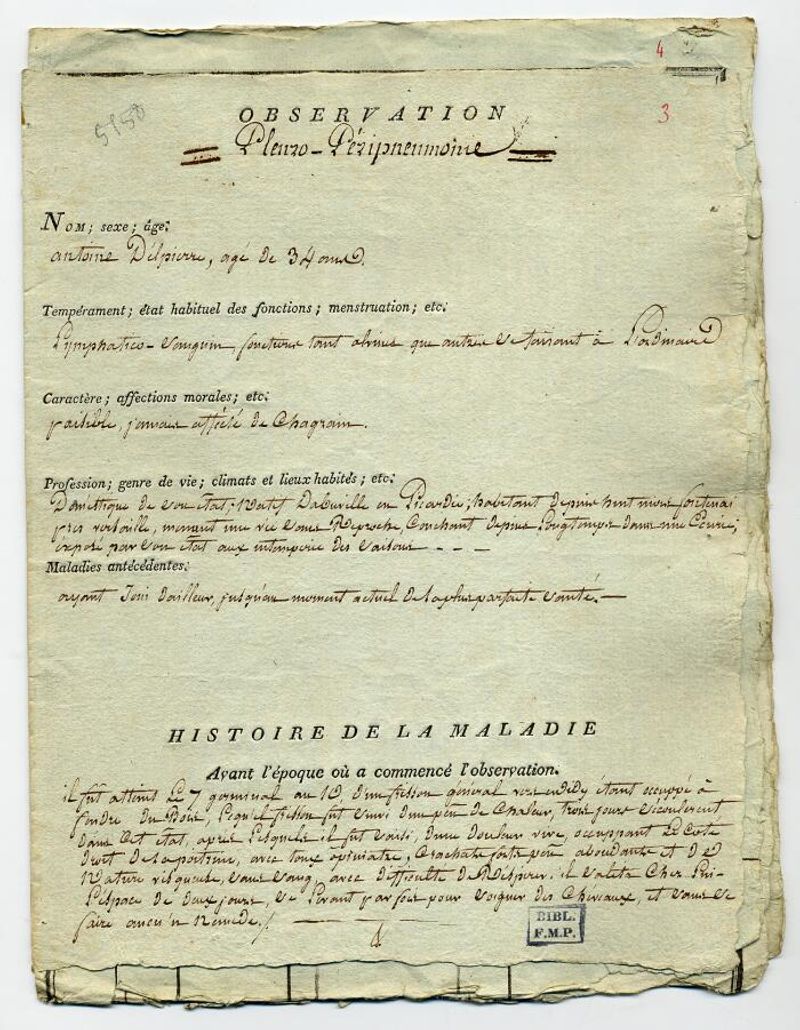 4
5950
3
OBSERVATION
Pleuro-Péripneumonie
NOM; sexe; âge:
antoine Délpierre, agé de 34 ans.
Tempérament; état habituel des fonctions; menstruation; etc:
Lymphatico-Sanguin, fonctions tant alvines que autres se faisant à L'ordinaire
Caractère; affections morales; etc:
paisible, jamais affécté de Chagrain.
Profession; genre de vie; climats et lieux habités; etc:
Doméstique de son état; Natif D'abeville en Picardie; habitant depuis huit mois fontenai
pres versaille, menant une vie sans Reproche, Couchant depuis Longtemps dans une Ecurie;
éxposé par son état aux intemperie des saisons - - -
Maladies antécédentes:
ayant Joui d'ailleur, jusqu'au moment actuel de la plus parfaite santé. —
HISTOIRE DE LA MALADIE
Avant l'époque où a commencé l'observation.
il fut atteint Le 7 germinal an 10 d'un frisson général vers midy étant occuppé à
fendre du Bois, Lequel frisson fut suivi d'un peu de Chaleur, trois jours s'écoulerent
dans Cet état, après Lesquels il fut saisi, d'une douleur vive, occuppant Le Coté
droit de la poitrine, avec toux opiniatre, Crachats forts peu abondants et de
Nature visqueuse, sans sang, avec difficulté de Réspirer: il s'alita Chez Lui
L'éspace de deux jours, se Levant par fois pour soigner des Chevaux, et sans se
faire aucun Reméde./.
BIBL.
F.M.P.